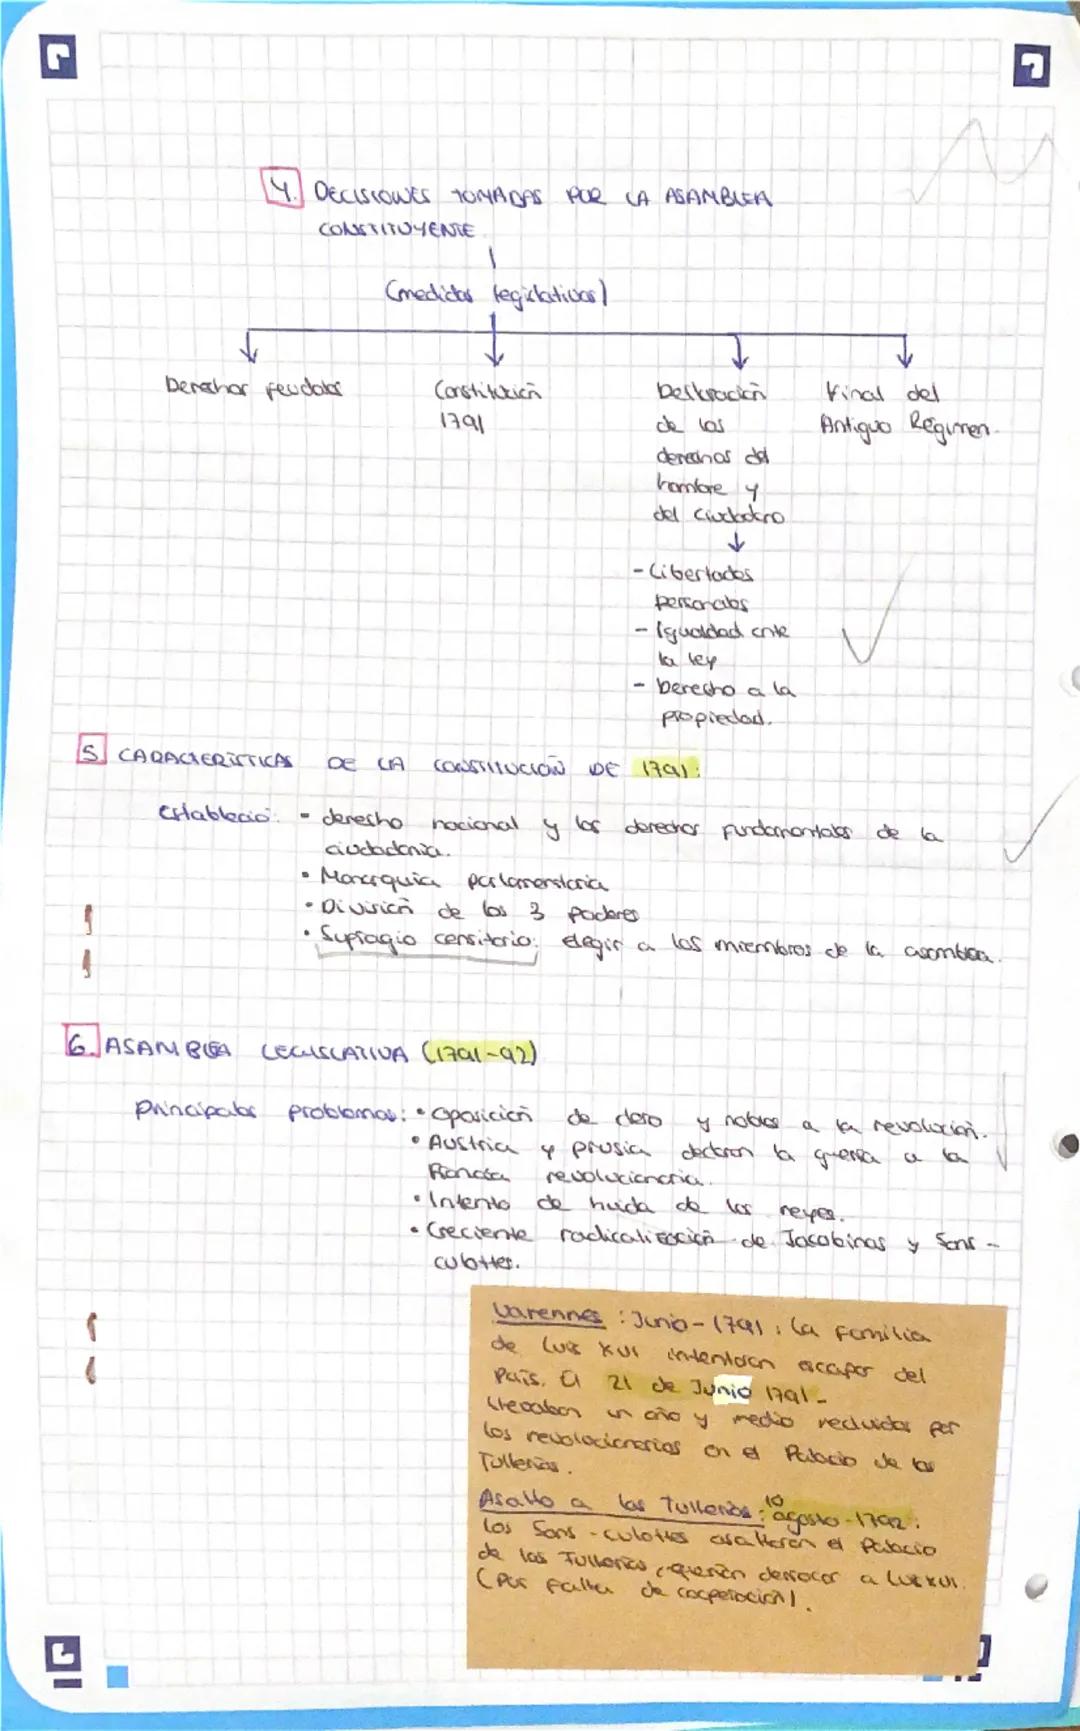 4. DECISIONES TOMADAS POR LA ASAMBLEA
CONSTITUYENTE
(medidas legislativas)
Derechos feudales
Constitución
1791
Declaración
de los
derechos del
hombre y
del ciudadano
- Libertades
personales
- Igualdad ante
la ley
- Derecho a la
propiedad.
Final del
Antiguo Régimen.
5. CARACTERÍSTICAS DE LA CONSTITUCIÓN DE 1791:
Estableció: • derecho nacional y los derechos fundamentales de la
ciudadanía.
• Monarquía parlamentaria
• División de los 3 poderes
• Sufragio censitario: elegir a los miembros de la asamblea.
6. ASAMBLEA LEGISLATIVA (1791-92)
Principales problemas: • Oposición de clero y nobles a la revolución.
• Austria y prusia declaran la guerra a la
Francia revolucionaria.
• Intento de huida de los reyes.
• Creciente radicalización de Jacobinos y Sans-
culottes.
Varennes: Junio-1791: la familia
de Luis XVI intentaron escapar del
país. El 21 de Junio 1791-
Llevaban un año y medio recluidos por
los revolucionarios en el Palacio de las
Tullerías.
Asalto a las Tullerías: 10 agosto-1792:
los Sans-culottes asaltaron el Palacio
de las Tullerías, querían derrocar a Luis XVI.
(Por falta de cooperación).